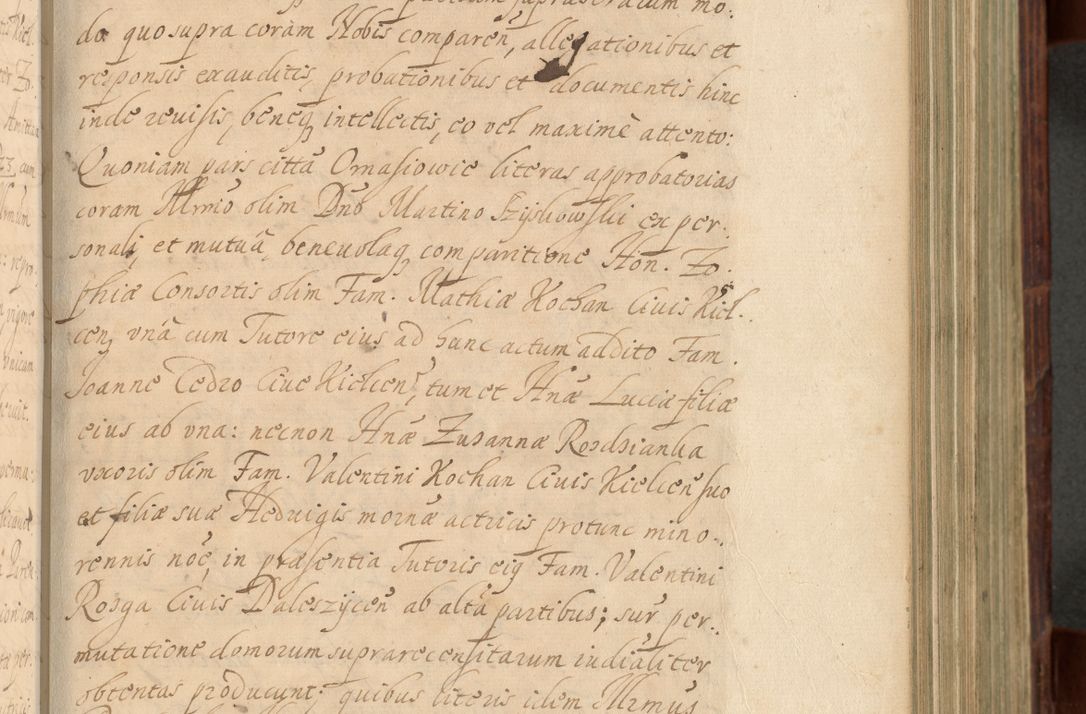 do quo supra coram Nobis comparen, allegationibus et
responsis exauditis, probationibus et documentis hinc
inde reuisis, beneq intellectis, eo vel maximè attento:
Quoniam pars cittã Omasiowic literas approbatorias
coram Illrmõ olim Dnõ Martino Szyszkowski ex per:
sonali, et mutuâ, beneuolaq comparitione Hon. Zo.
phiæ Consortis olim Fam. Mathiæ Kochan Ciuis Kiel.
cen, vnâ cum Tutore eius ad hunc actum addito Fam.
Joanne Cedro Ciue Kielcen, tum et Hnæ Luciæ filiæ
eius ab vna: necnon Hnæ Zuzannæ Rozdzianka
vxoris olim Fam. Valentini Kochan Ciuis Kielcen suo
et filiæ suæ Heduigis mornæ actricis protunc mino:
rennis nõe, in præsentia Tutoris eiq Fam. Valentini
Rozga Ciuis Daleszÿcen ab altâ partibus; sup per:
mutatione domorum suprarecensitarum iudialiter
obtentas producunt; quibus literis idem Illrmus